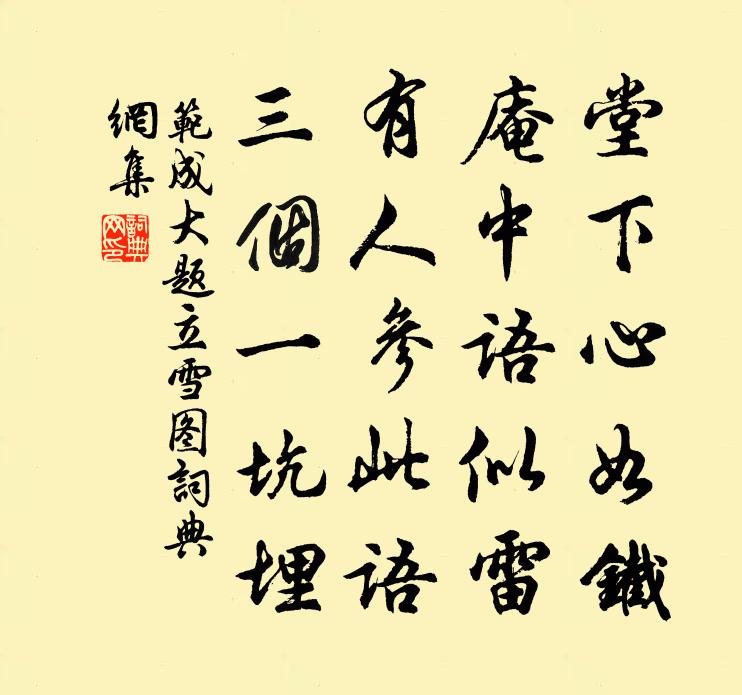 堂下心如鐵
庵中語似雷
有人參此語
三個一坑埋
範成大題立雪图詞典
網集
詞典
网印